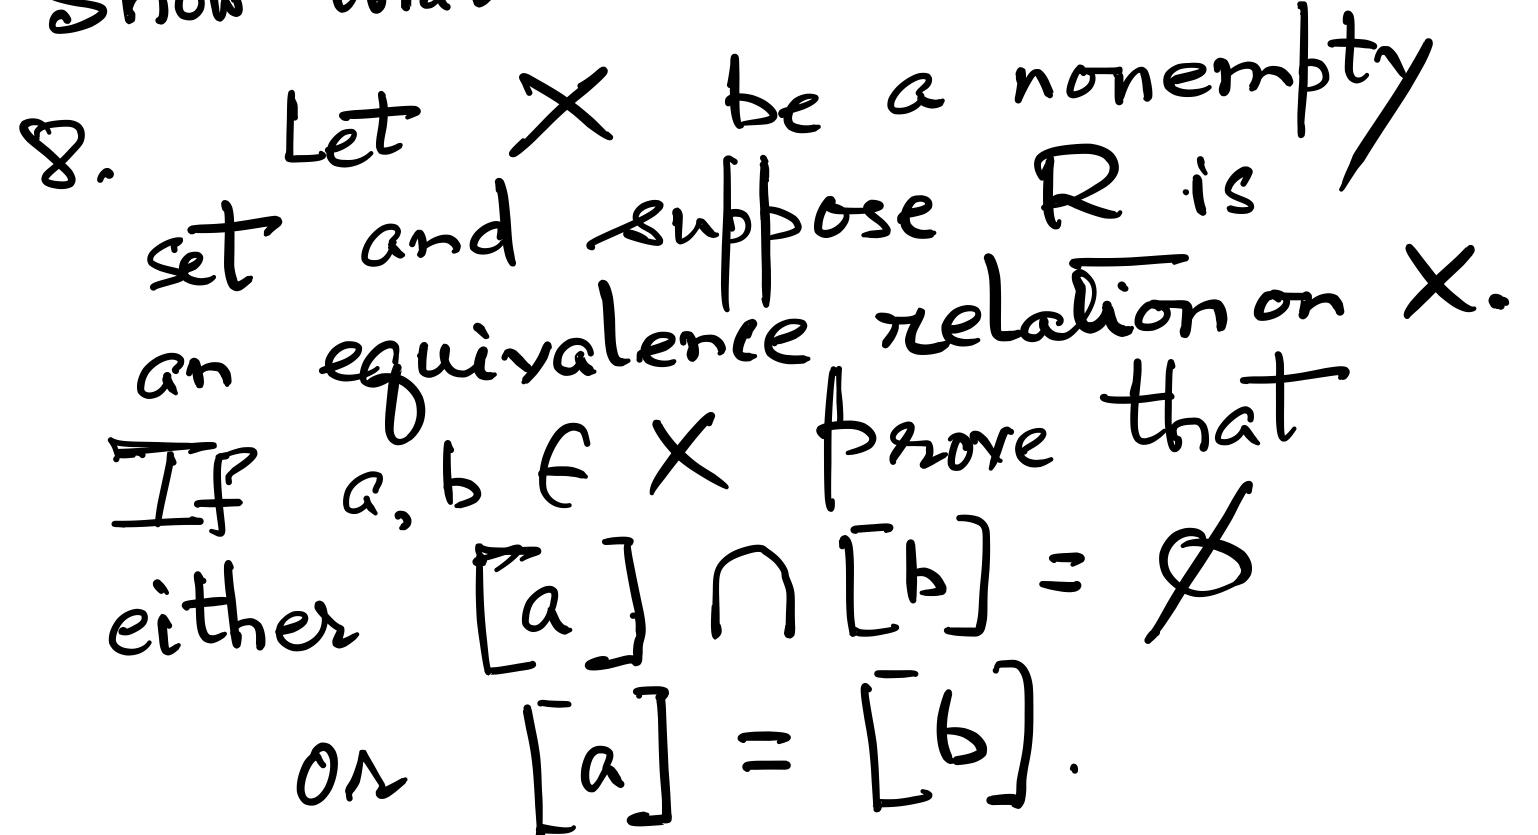 Show that
8. Let X be a nonempty
set and suppose R is
an equivalence relation on X.
If a, b ∈ X prove that
either [a] ∩ [b] = ∅
or [a] = [b].